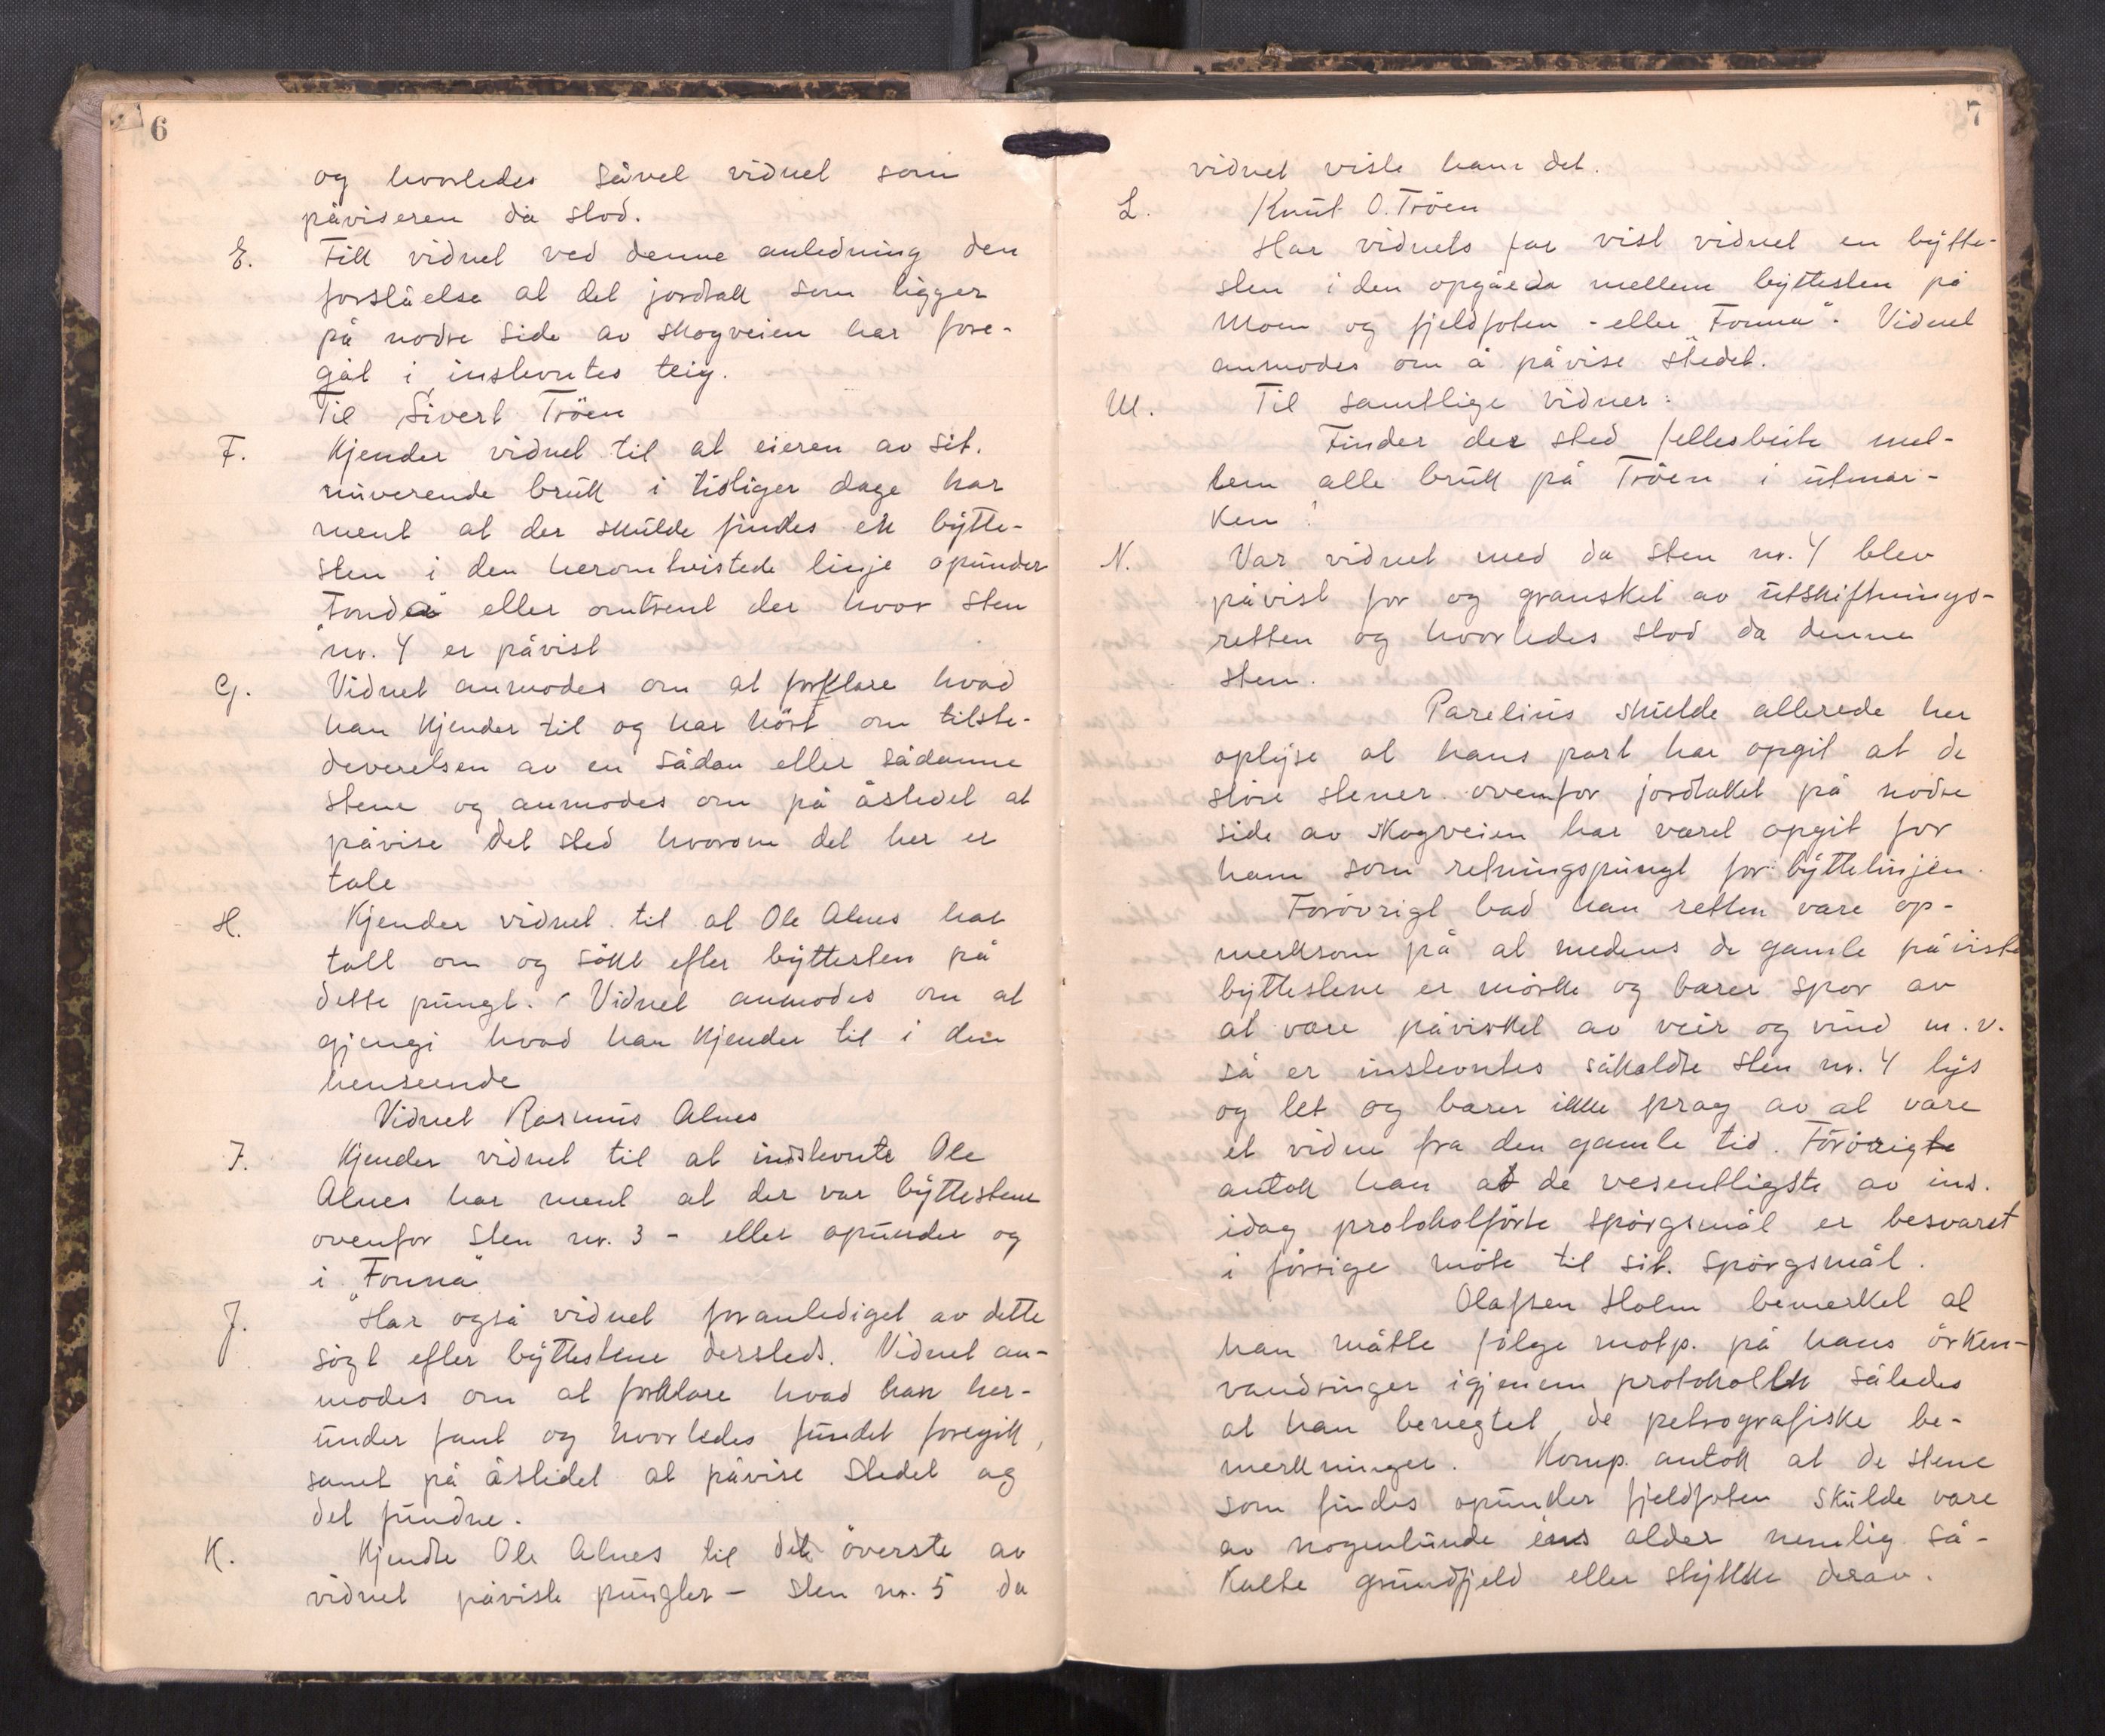 6
og hvorledes såvel vidnet som
påviseren da stod.
E. Fikk vidnet ved denne anledning den
forståelse at det jordtak som ligger
på nodre side av skogveien har fore-
gåt i instevntes teig.
Til Sivert Tröen
F. Kjender vidnet til at eieren av sit.
nuverende bruk i tidliger dage har
ment at der skulde findes en bytte-
sten i den heromtvistede linje opunder
"Fonda" eller omtrent der hvor sten
nr. 4 er påvist
G. Vidnet anmodes om at forklare hvad
han kjender til og har hört om tilste-
deverelsen av en sådan eller sådanne
stene og anmodes om på åstedet at
påvise det sted hvorom det her er
tale
H. Kjender vidnet til at Ole Alnes har
talt om og sökt efter byttesten på
dette pungt. Vidnet anmodes om at
gjengi hvad han kjender til i den
henseende
Vidnet Rasmus Alnes
I. Kjender vidnet til at indstevnte Ole
Alnes har ment at der var byttestene
ovenfor sten nr. 3 - eller opunder og
i "Fonna"
J. Har også vidnet foranlediget av dette
sögt efter byttestene dersteds. Vidnet an-
modes om at forklare hvad han her-
under fant og hvorledes fundet foregik,
samt på åstedet at påvise stedet og
det fundne.
K. Kjendte Ole Alnes til det överste av
vidnet påviste pungter - sten nr. 5 da
7
vidnet viste ham det.
L. Knut O. Tröen
Har vidnets far vist vidnet en bytte-
sten i den opgåede mellem byttesten på
Moen og fjeldfoten - eller "Fonna". Vidnet
anmodes om å påvise stedet.
M. Til samtlige vidner:
Finder der sted fellesbeite mel-
lem alle bruk på Tröen i utmar-
ken?
N. Var vidnet med da sten nr. 4 blev
påvist for og gransket av utskiftnings-
retten og hvorledes stod da denne
sten.
Parelius skulde allerede her
oplyse at hans part har opgit at de
störe stener ovenfor jordtaket på nodre
side av skogveien har været opgit for
ham som retningspungt for byttelinjen.
Forövrigt bad han retten være op-
merksom på at medens de gamle påviste
byttestene er mörke og bærer spor av
at være påvirket av veir og vind m.v.
så er instevntes såkaldte sten nr. 4 lys
og let og bærer ikke preg av at være
et vidne fra den gamle tid. Forövrigt
antok han at de vesentligste av ins.
idag protokolförte spörgsmål er besvaret
i forrige möte til sit. spörgsmål.
Olafsen Holm bemerket at
han måtte fölge motp. på hans örken-
vandringer igjenem protokollen således
at han benegtet de petrografiske be-
merkninger. Komp. antok at de stene
som findes opunder fjeldfoten skulde være
av nogenlunde ens alder nemlig så-
kalte grundfjeld eller stykke derav.